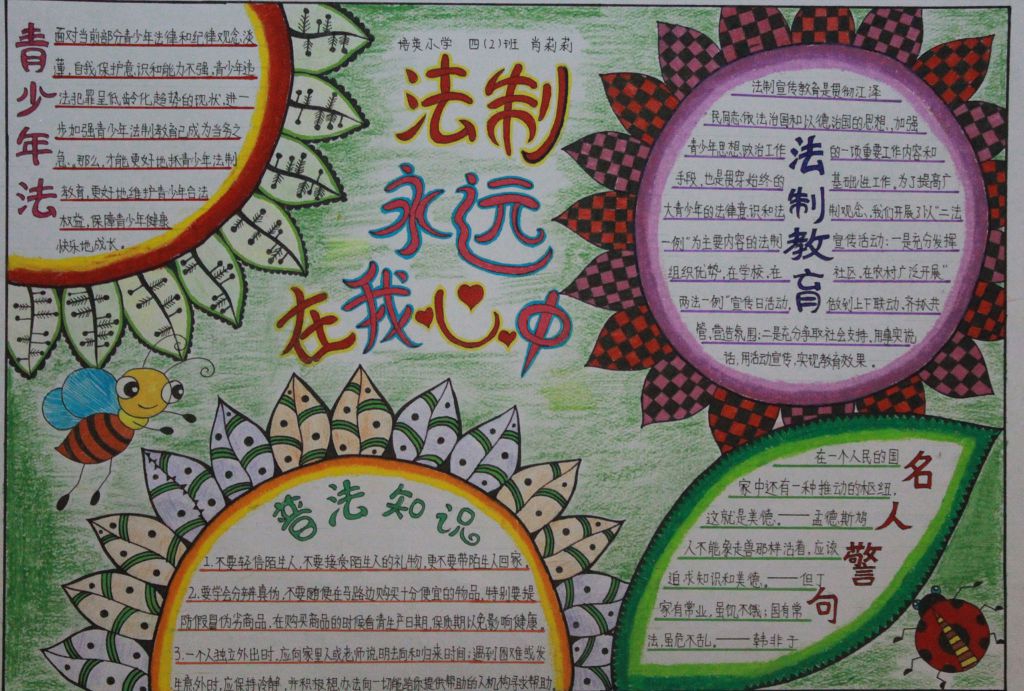 青少年法
面对当前部分青少年法律和纪律观念淡
薄,自我保护意识和能力不强,青少年违
法犯罪呈低龄化趋势的现状,进一
步加强青少年法制教育已成为当务之
急。那么,才能更好地抓青少年法制
教育,更好地维护青少年合法
权益,保障青少年健康
快乐地成长。
培英小学 四(2)班 肖莉莉
法制
永远
在我心中
法制教育
法制宣传教育是贯彻江泽
民同志依法治国和以德治国的思想,加强
青少年思想政治工作的一项重要工作内容和
手段,也是贯穿始终的基础性工作,为了提高广
大青少年的法律意识和法制观念,我们开展了以“二法
一例”为主要内容的法制宣传活动:一是充分发挥
组织优势,在学校、在社区、在农村广泛开展“
两法一例”宣传日活动,做到上下联动,齐抓共
管,营造氛围;二是充分争取社会支持,用事实说
话,用活动宣传,实现教育效果。
普法知识
1.不要轻信陌生人,不要接受陌生人的礼物,更不要带陌生人回家。
2.要学会分辨真伪,不要随便在马路边购买十分便宜的物品,特别要提
防假冒伪劣商品,在购买商品的时候看清生产日期,保质期以免影响健康。
3.一个人独立外出时,应向家里人或老师说明去向和归来时间;遇到困难或发
生意外时,应保持冷静,并积极想办法向一切能给你提供帮助的人机构寻求帮助。
名人警句
在一个人民的国
家中还有一种推动的枢纽,
这就是美德。——孟德斯鸠
人不能象走兽那样活着,应该
追求知识和美德。——但丁
家有常业,虽饥不饿;国有常
法,虽危不乱。——韩非子